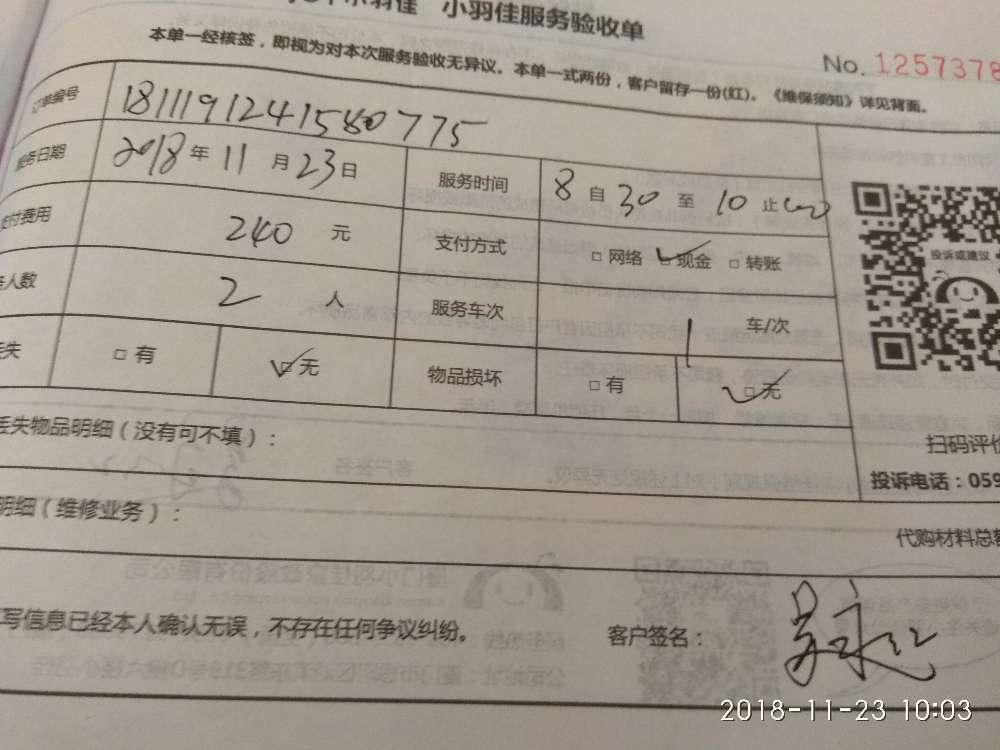 小羽佳 小羽佳服务验收单
本单一经核签，即视为对本次服务验收无异议。本单一式两份，客户留存一份(红)。《维保须知》详见背面。
No. 1257378
订单编号 1811191241580775
服务日期 2018年11月23日 服务时间 8自30至10止
付费用 240元 支付方式 □网络 ☑现金 □转账
人数 2人 服务车次 1车/次
失 □有 ☑无 物品损坏 □有 ☑无
投诉或建议
丢失物品明细（没有可不填）：
扫码评价
投诉电话：059
明细（维修业务）：
代购材料总额
写信息已经本人确认无误，不存在任何争议纠纷。 客户签名：
2018-11-23 10:03